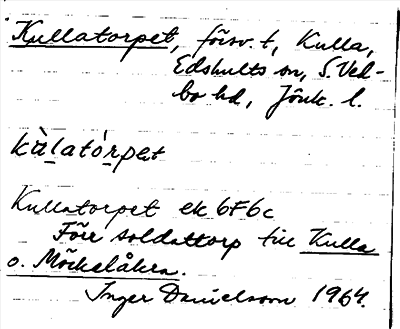 Kullatorpet, försv. t, Kulla,
Edshults sn, S. Ved-
bo hd, Jönk. l.
kàlatórpet
Kullatorpet ek 6F6c
Förr soldattorp till Kulla
o. Möckelåkra.
Inger Danielsson 1964.